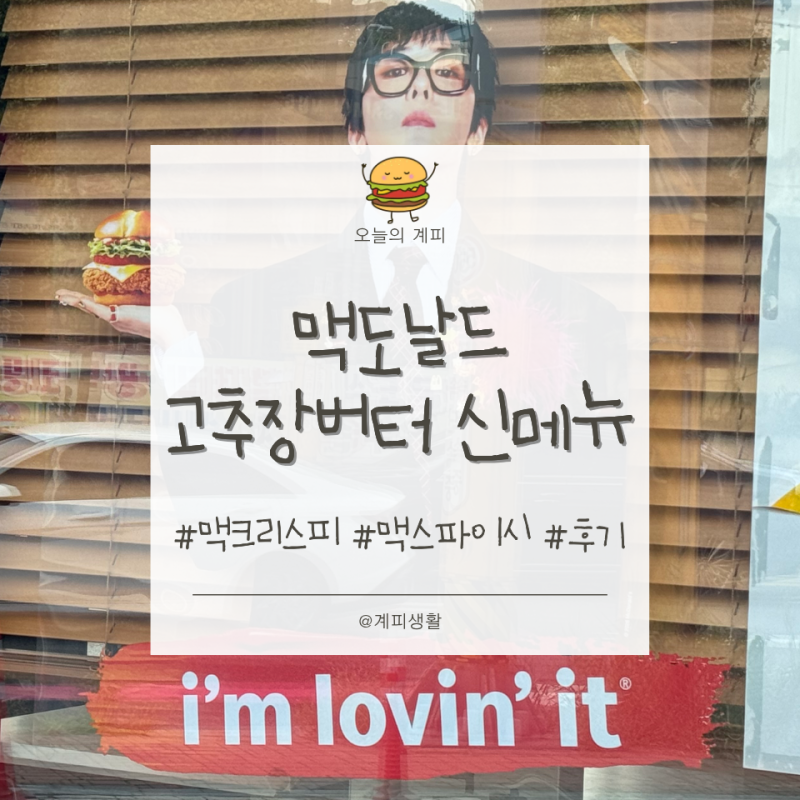 오늘의 계피
맥도날드
고추장버터 신메뉴
#맥크리스피 #맥스파이시 #후기
@계피생활
i'm lovin' it®